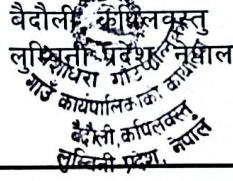 बैदौली, कपिलवस्तु
लुम्बिनी प्रदेश, नेपाल
यशोधरा गाउँपालिका
गाउँ कार्यपालिकाको कार्यालय
बैदौली, कपिलवस्तु
लुम्बिनी प्रदेश, नेपाल